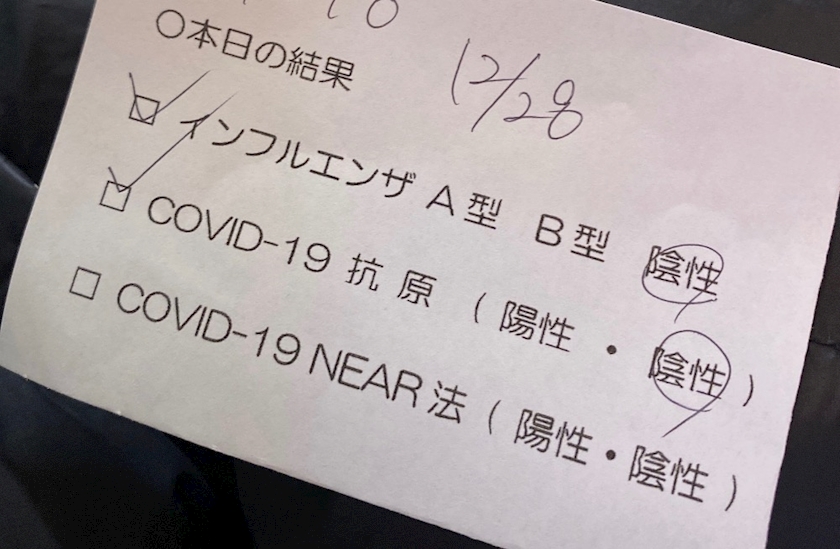 ○本日の結果 12/28
☑ インフルエンザ A型 B型 陰性
☑ COVID-19 抗原 ( 陽性 ・ 陰性 )
□ COVID-19 NEAR法 ( 陽性 ・ 陰性 )